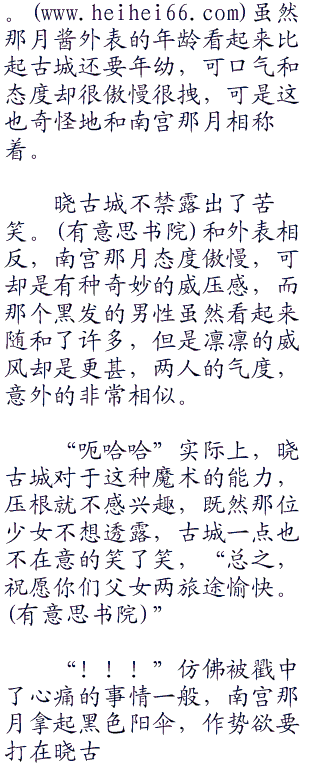 。(www.heihei66.com)虽然
那月酱外表的年龄看起来比
起古城还要年幼，可口气和
态度却很傲慢很拽，可是这
也奇怪地和南宫那月相称
着。
晓古城不禁露出了苦
笑。(有意思书院)和外表相
反，南宫那月态度傲慢，可
却是有种奇妙的威压感，而
那个黑发的男性虽然看起来
随和了许多，但是凛凛的威
风却是更甚，两人的气度，
意外的非常相似。
“呃哈哈”实际上，晓
古城对于这种魔术的能力，
压根就不感兴趣，既然那位
少女不想透露，古城一点也
不在意的笑了笑，“总之，
祝愿你们父女两旅途愉快。
(有意思书院)”
“！！！”仿佛被戳中
了心痛的事情一般，南宫那
月拿起黑色阳伞，作势欲要
打在晓古